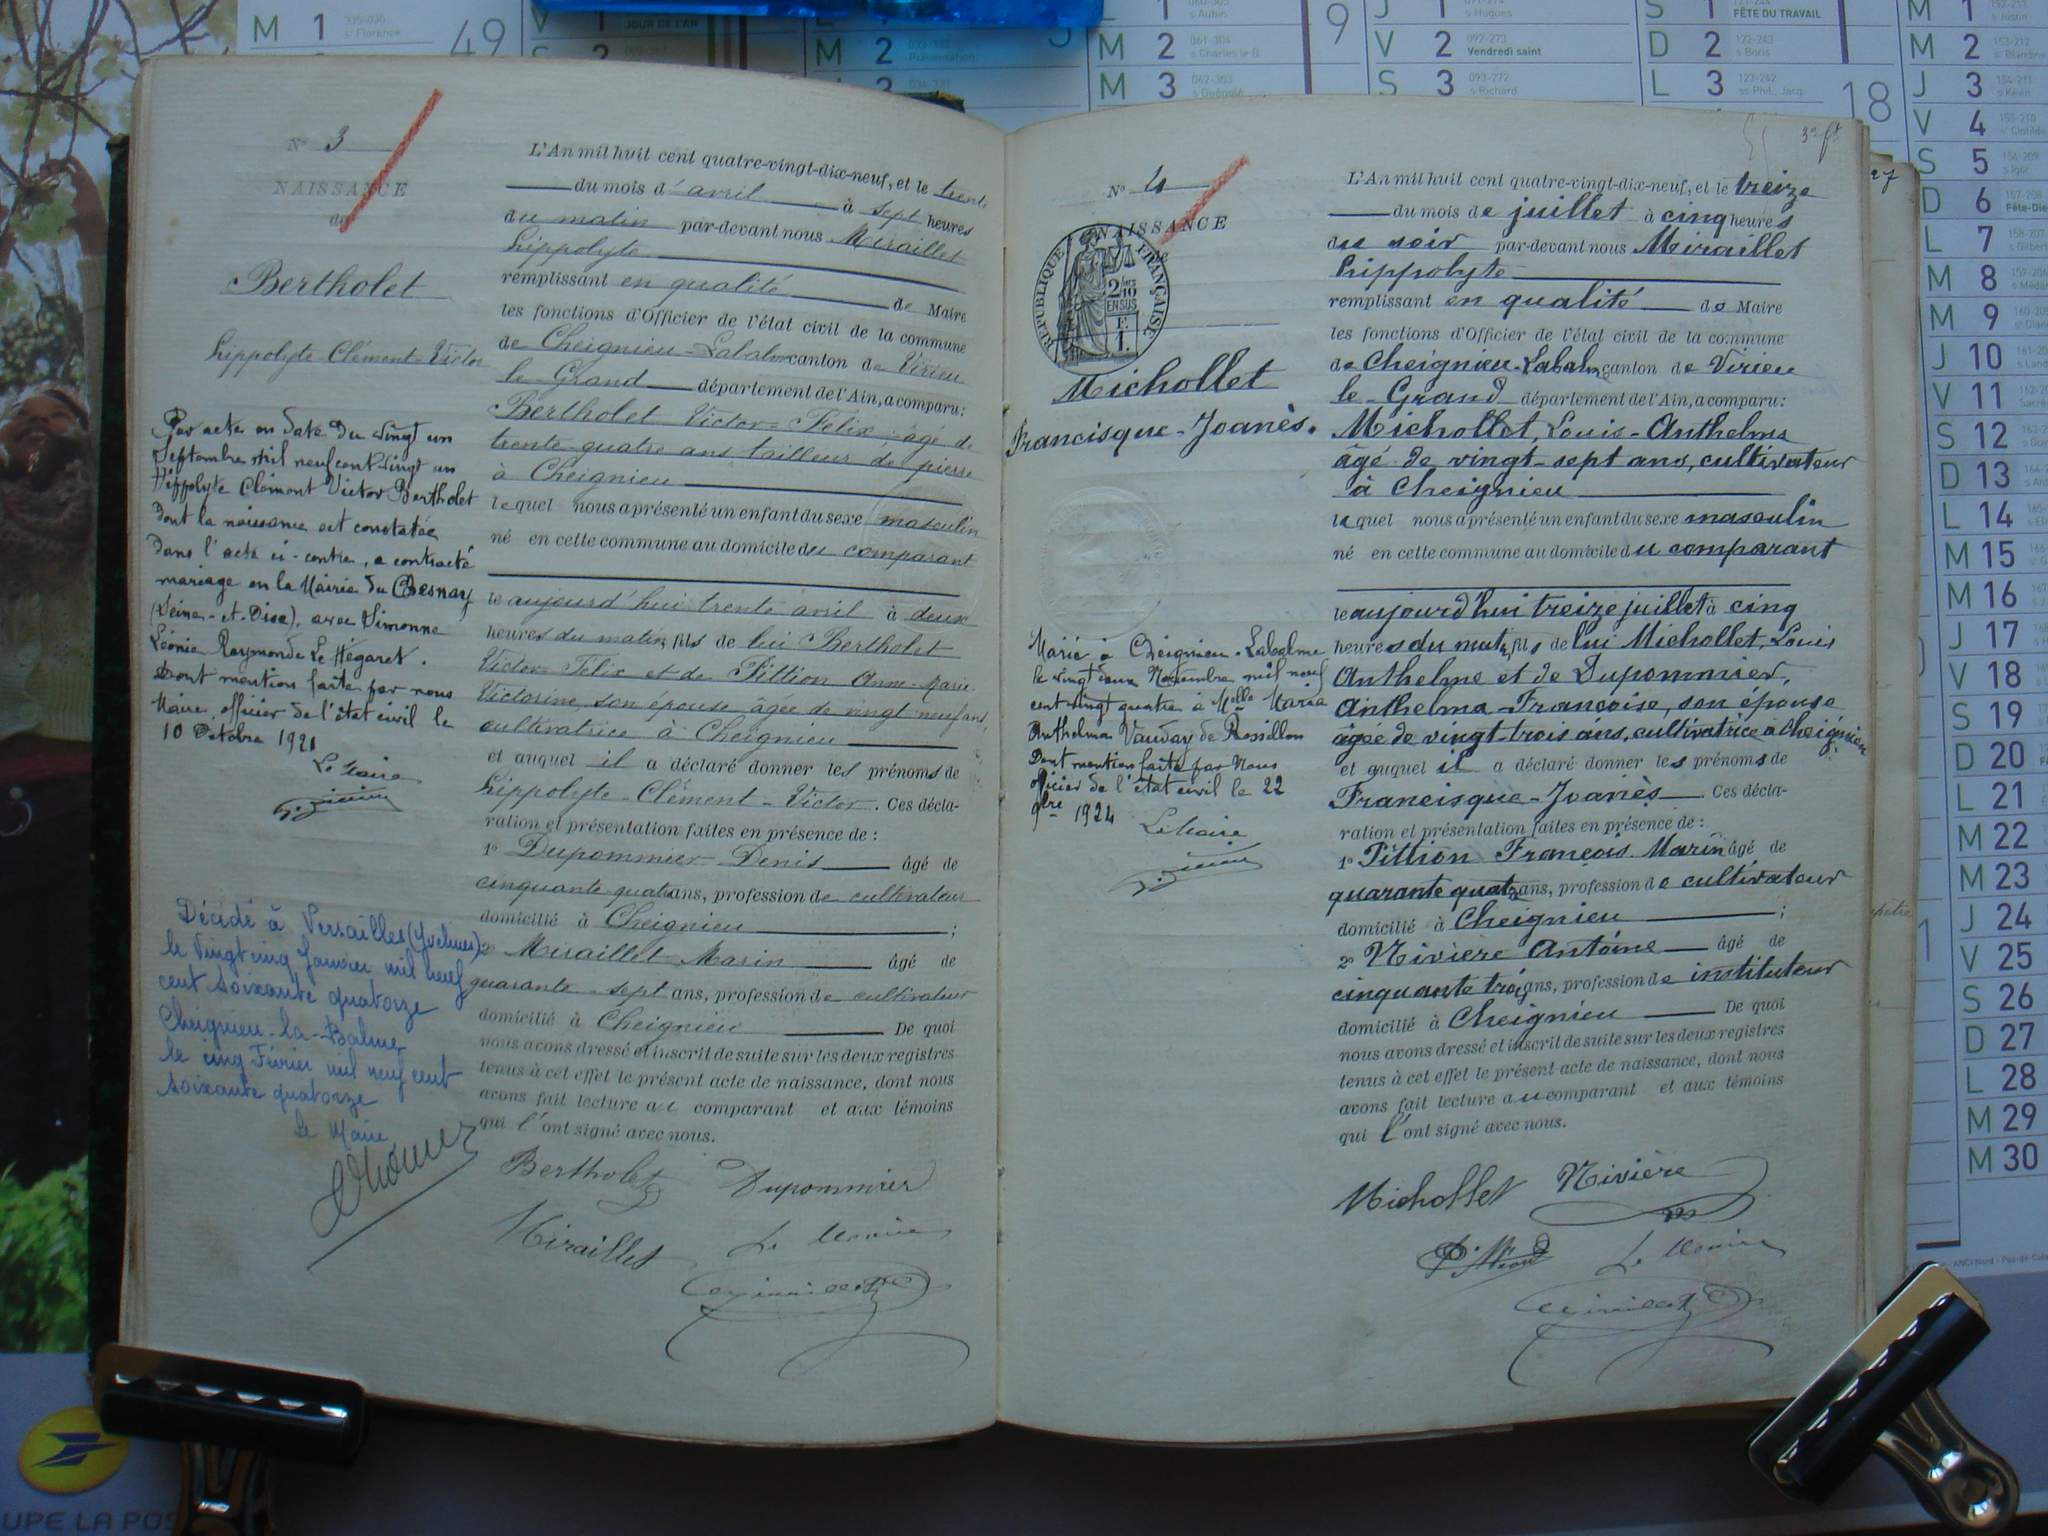 N° 3
NAISSANCE
de
Bertholet
hippolyte Clément Victor
Par acte en date du vingt un
Septembre mil neuf cent vingt un
Hippolyte Clément Victor Bertholet
dont la naissance est constatée
dans l'acte ci-contre, a contracté
mariage en la Mairie du Chesnay
(Seine-et-Oise), avec Simonne
Léonie Raymonde Le Hégaret.
Dont mention faite par nous
Maire, officier de l'état civil le
10 Octobre 1921
Le Maire
Décédé à Versailles (Yvelines)
le vingt cinq Janvier mil neuf
cent soixante quatorze
Cheignieu-la-Balme
le cinq Février mil neuf cent
soixante quatorze
Le Maire
L'An mil huit cent quatre-vingt-dix-neuf, et le trente
du mois d'avril à sept heures
du matin par-devant nous Miraillet
hippolyte
remplissant en qualité de Maire
les fonctions d'Officier de l'état civil de la commune
de Cheignieu-Labalme canton de Virieu
le Grand département de l'Ain, a comparu:
Bertholet Victor-Félix, âgé de
trente-quatre ans tailleur de pierre
à Cheignieu
lequel nous a présenté un enfant du sexe masculin
né en cette commune au domicile du comparant
le aujourd'hui trente avril à deux
heures du matin, fils de lui Bertholet
Victor-Félix et de Pittion Anne-Marie
Victorine, son épouse âgée de vingt neuf ans,
cultivatrice à Cheignieu
et auquel il a déclaré donner les prénoms de
hippolyte-Clément-Victor. Ces décla-
ration et présentation faites en présence de:
1° Dupommier Denis âgé de
cinquante quatre ans, profession de cultivateur
domicilié à Cheignieu;
2° Miraillet Marin âgé de
quarante-sept ans, profession de cultivateur
domicilié à Cheignieu De quoi
nous avons dressé et inscrit de suite sur les deux registres
tenus à cet effet le présent acte de naissance, dont nous
avons fait lecture au comparant et aux témoins
qui l'ont signé avec nous.
Bertholet Dupommier
Miraillet Le Maire
N° 4
NAISSANCE
de
RÉPUBLIQUE FRANÇAISE
2/10
EN SUS
F.
1.
Michollet
Francisque-Joanès.
Marié à Cheignieu-Labalme
le vingt deux Novembre mil neuf
cent vingt quatre à Melle Maria
Anthelma Vauday de Rossillon
Dont mention faite par Nous
officier de l'état civil le 22
9bre 1924
Le Maire
3e ft
L'An mil huit cent quatre-vingt-dix-neuf, et le treize
du mois de juillet à cinq heures
du soir par-devant nous Miraillet
hippolyte
remplissant en qualité de Maire
les fonctions d'Officier de l'état civil de la commune
de Cheignieu-Labalme canton de Virieu
le Grand département de l'Ain, a comparu:
Michollet, Louis-Anthelme
âgé de vingt-sept ans, cultivateur
à Cheignieu
lequel nous a présenté un enfant du sexe masculin
né en cette commune au domicile du comparant
le aujourd'hui treize juillet à cinq
heures du matin, fils de lui Michollet, Louis
Anthelme et de Dupommier,
Anthelma-Françoise, son épouse
âgée de vingt-trois ans, cultivatrice à Cheignieu
et auquel il a déclaré donner les prénoms de
Francisque-Joanès. Ces décla-
ration et présentation faites en présence de:
1° Pittion François Marin âgé de
quarante quatre ans, profession de cultivateur
domicilié à Cheignieu;
2° Nivière Antoine âgé de
cinquante trois ans, profession de instituteur
domicilié à Cheignieu De quoi
nous avons dressé et inscrit de suite sur les deux registres
tenus à cet effet le présent acte de naissance, dont nous
avons fait lecture au comparant et aux témoins
qui l'ont signé avec nous.
Michollet Nivière
Le Maire
27
M 1
49
JOUR DE L'AN
M 2
M 1
M 2
M 3
9
V 2 Vendredi saint
S 3 s Richard
S 1 FÊTE DU TRAVAIL
D 2 s Boris
L 3 ss Phil., Jacq.
18
M 1 s Justin
M 2
J 3
V 4
S 5 s Igor
D 6
L 7
M 8
M 9
J 10
V 11
S 12
D 13
L 14
M 15
M 16
J 17
V 18
S 19
D 20
L 21
M 22
M 23
J 24
V 25
S 26
D 27
L 28
M 29
M 30
UPE LA POS